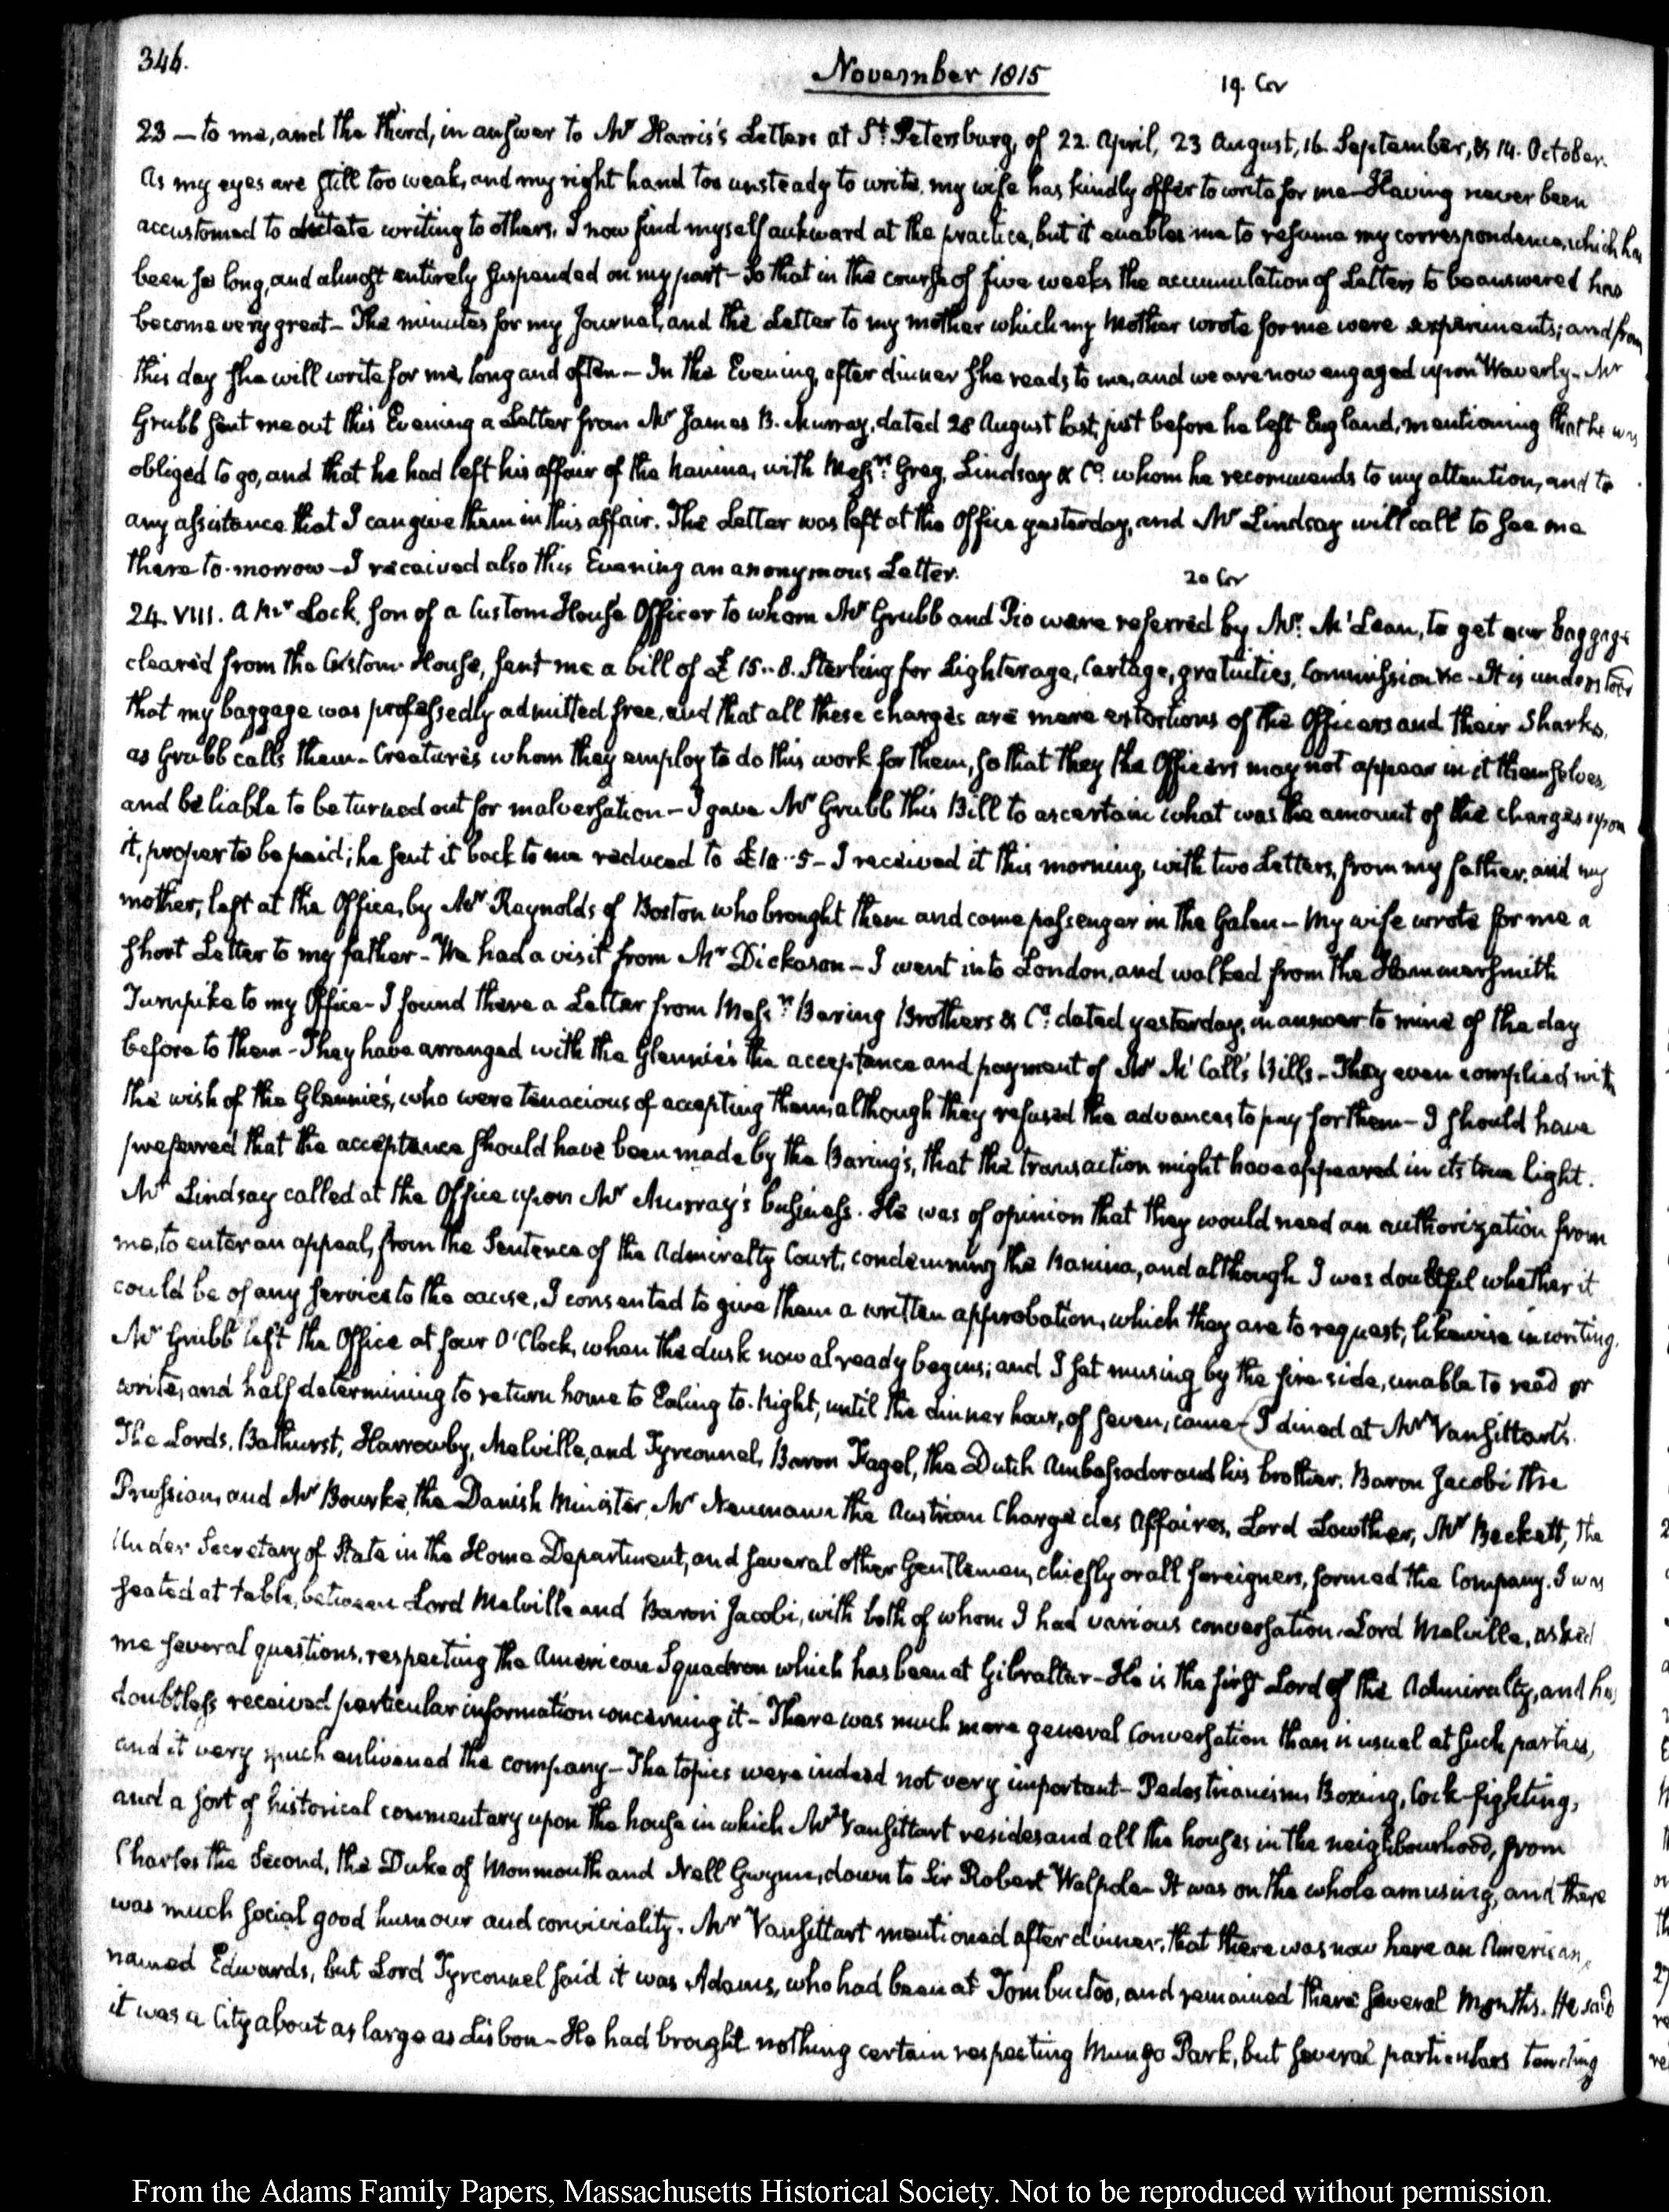 346.
November 1815
19. Cor
23 — to me, and the third, in answer to Mr Harris's Letters at St. Petersburg, of 22. April, 23 August, 16. September, & 14. October.
As my eyes are still too weak, and my right hand too unsteady to write, my wife has kindly offer to write for me — Having never been
accustomed to dictate writing to others, I now find myself aukward at the practice, but it enables me to resume my correspondence, which has
been so long, and almost entirely suspended on my part — So that in the course of five weeks the accumulation of Letters to be answered has
become very great — The minutes for my Journal, and the Letter to my mother which my Mother wrote for me were experiments; and from
this day she will write for me, long and often — In the Evening, after dinner she reads to me, and we are now engaged upon Waverly — Mr
Grubb sent me out this Evening a Letter from Mr James B. Murray, dated 28 August last, just before he left England, mentioning that he was
obliged to go, and that he had left his affair of the Nanina, with Messrs. Greg, Lindsay & Co. whom he recommends to my attention, and to
any assistance that I can give them in this affair. The Letter was left at the Office yesterday, and Mr Lindsay will call to see me
there to-morrow — I received also this Evening an anonymous Letter.
20 Cor
24. VIII. A Mr Lock, son of a Custom House Officer to whom Mr Grubb and Pio were referred by Mr. McLean, to get our baggage
cleared from the Custom-House, sent me a bill of £15..8. Sterling for Lighterage, Cartage, gratuities, Commission &c — It is understood
that my baggage was professedly admitted free, and that all these charges are mere extortions of the Officers and their Sharks,
as Grubb calls them — Creatures whom they employ to do this work for them, so that they the Officers may not appear in it themselves,
and be liable to be turned out for malversation — I gave Mr Grubb this Bill to ascertain what was the amount of the charges upon
it, proper to be paid; he sent it back to me reduced to £10..5 — I received it this morning, with two Letters, from my father, and my
mother, left at the Office, by Mr Reynolds of Boston who brought them and came passenger in the Galen — My wife wrote for me a
short Letter to my father — We had a visit from Mr Dickason — I went into London, and walked from the Hammersmith
Turnpike to my Office — I found there a Letter from Messrs Baring Brothers & Co. dated yesterday, in answer to mine of the day
before to them — They have arranged with the Glennie's the acceptance and payment of Mr McCall's Bills — They even complied with
the wish of the Glennies, who were tenacious of accepting them, although they refused the advances to pay for them — I should have
preferred that the acceptance should have been made by the Baring's, that the transaction might have appeared in its true light.
Mr Lindsay called at the Office upon Mr Murray's business. He was of opinion that they would need an authorization from
me, to enter an appeal, from the Sentence of the Admiralty Court, condemning the Nanina, and although I was doubtful whether it
could be of any service to the cause, I consented to give them a written approbation, which they are to request, likewise in writing.
Mr Grubb left the Office at four O'Clock, when the dusk now already begins; and I sat musing by the fire-side, unable to read or
write, and half determining to return home to Ealing to-night, until the dinner hour, of seven, came — I dined at Mr Vansittart's.
The Lords, Bathurst, Harrowby, Melville, and Tyrconnel, Baron Fagel, the Dutch Ambassador and his brother. Baron Jacobi the
Prussian, and Mr Bourke, the Danish Minister, Mr Neumann the Austrian Chargé des Affaires, Lord Lowther, Mr Beckett, the
Under Secretary of State in the Home Department, and several other Gentlemen, chiefly or all foreigners, formed the Company. I was
seated at table, between Lord Melville and Baron Jacobi, with both of whom I had various conversation. Lord Melville, asked
me several questions, respecting the American Squadron which has been at Gibraltar — He is the first Lord of the Admiralty, and has
doubtless received particular information concerning it — There was much more general Conversation than is usual at such parties,
and it very much enlivened the company — The topics were indeed not very important — Pedestrianism, Boxing, Cock-fighting,
and a sort of historical commentary upon the house in which Mr Vansittart resides and all the houses in the neighbourhood, from
Charles the Second, the Duke of Monmouth and Nell Gwynn, down to Sir Robert Walpole — It was on the whole amusing, and there
was much social good humour and conviviality. Mr Vansittart mentioned after dinner, that there was now here an American,
named Edwards, but Lord Tyrconnel said it was Adams, who had been at Tombuctoo, and remained there several Months. He said
it was a City about as large as Lisbon — He had brought nothing certain respecting Mungo Park, but several particulars tending
From the Adams Family Papers, Massachusetts Historical Society. Not to be reproduced without permission.